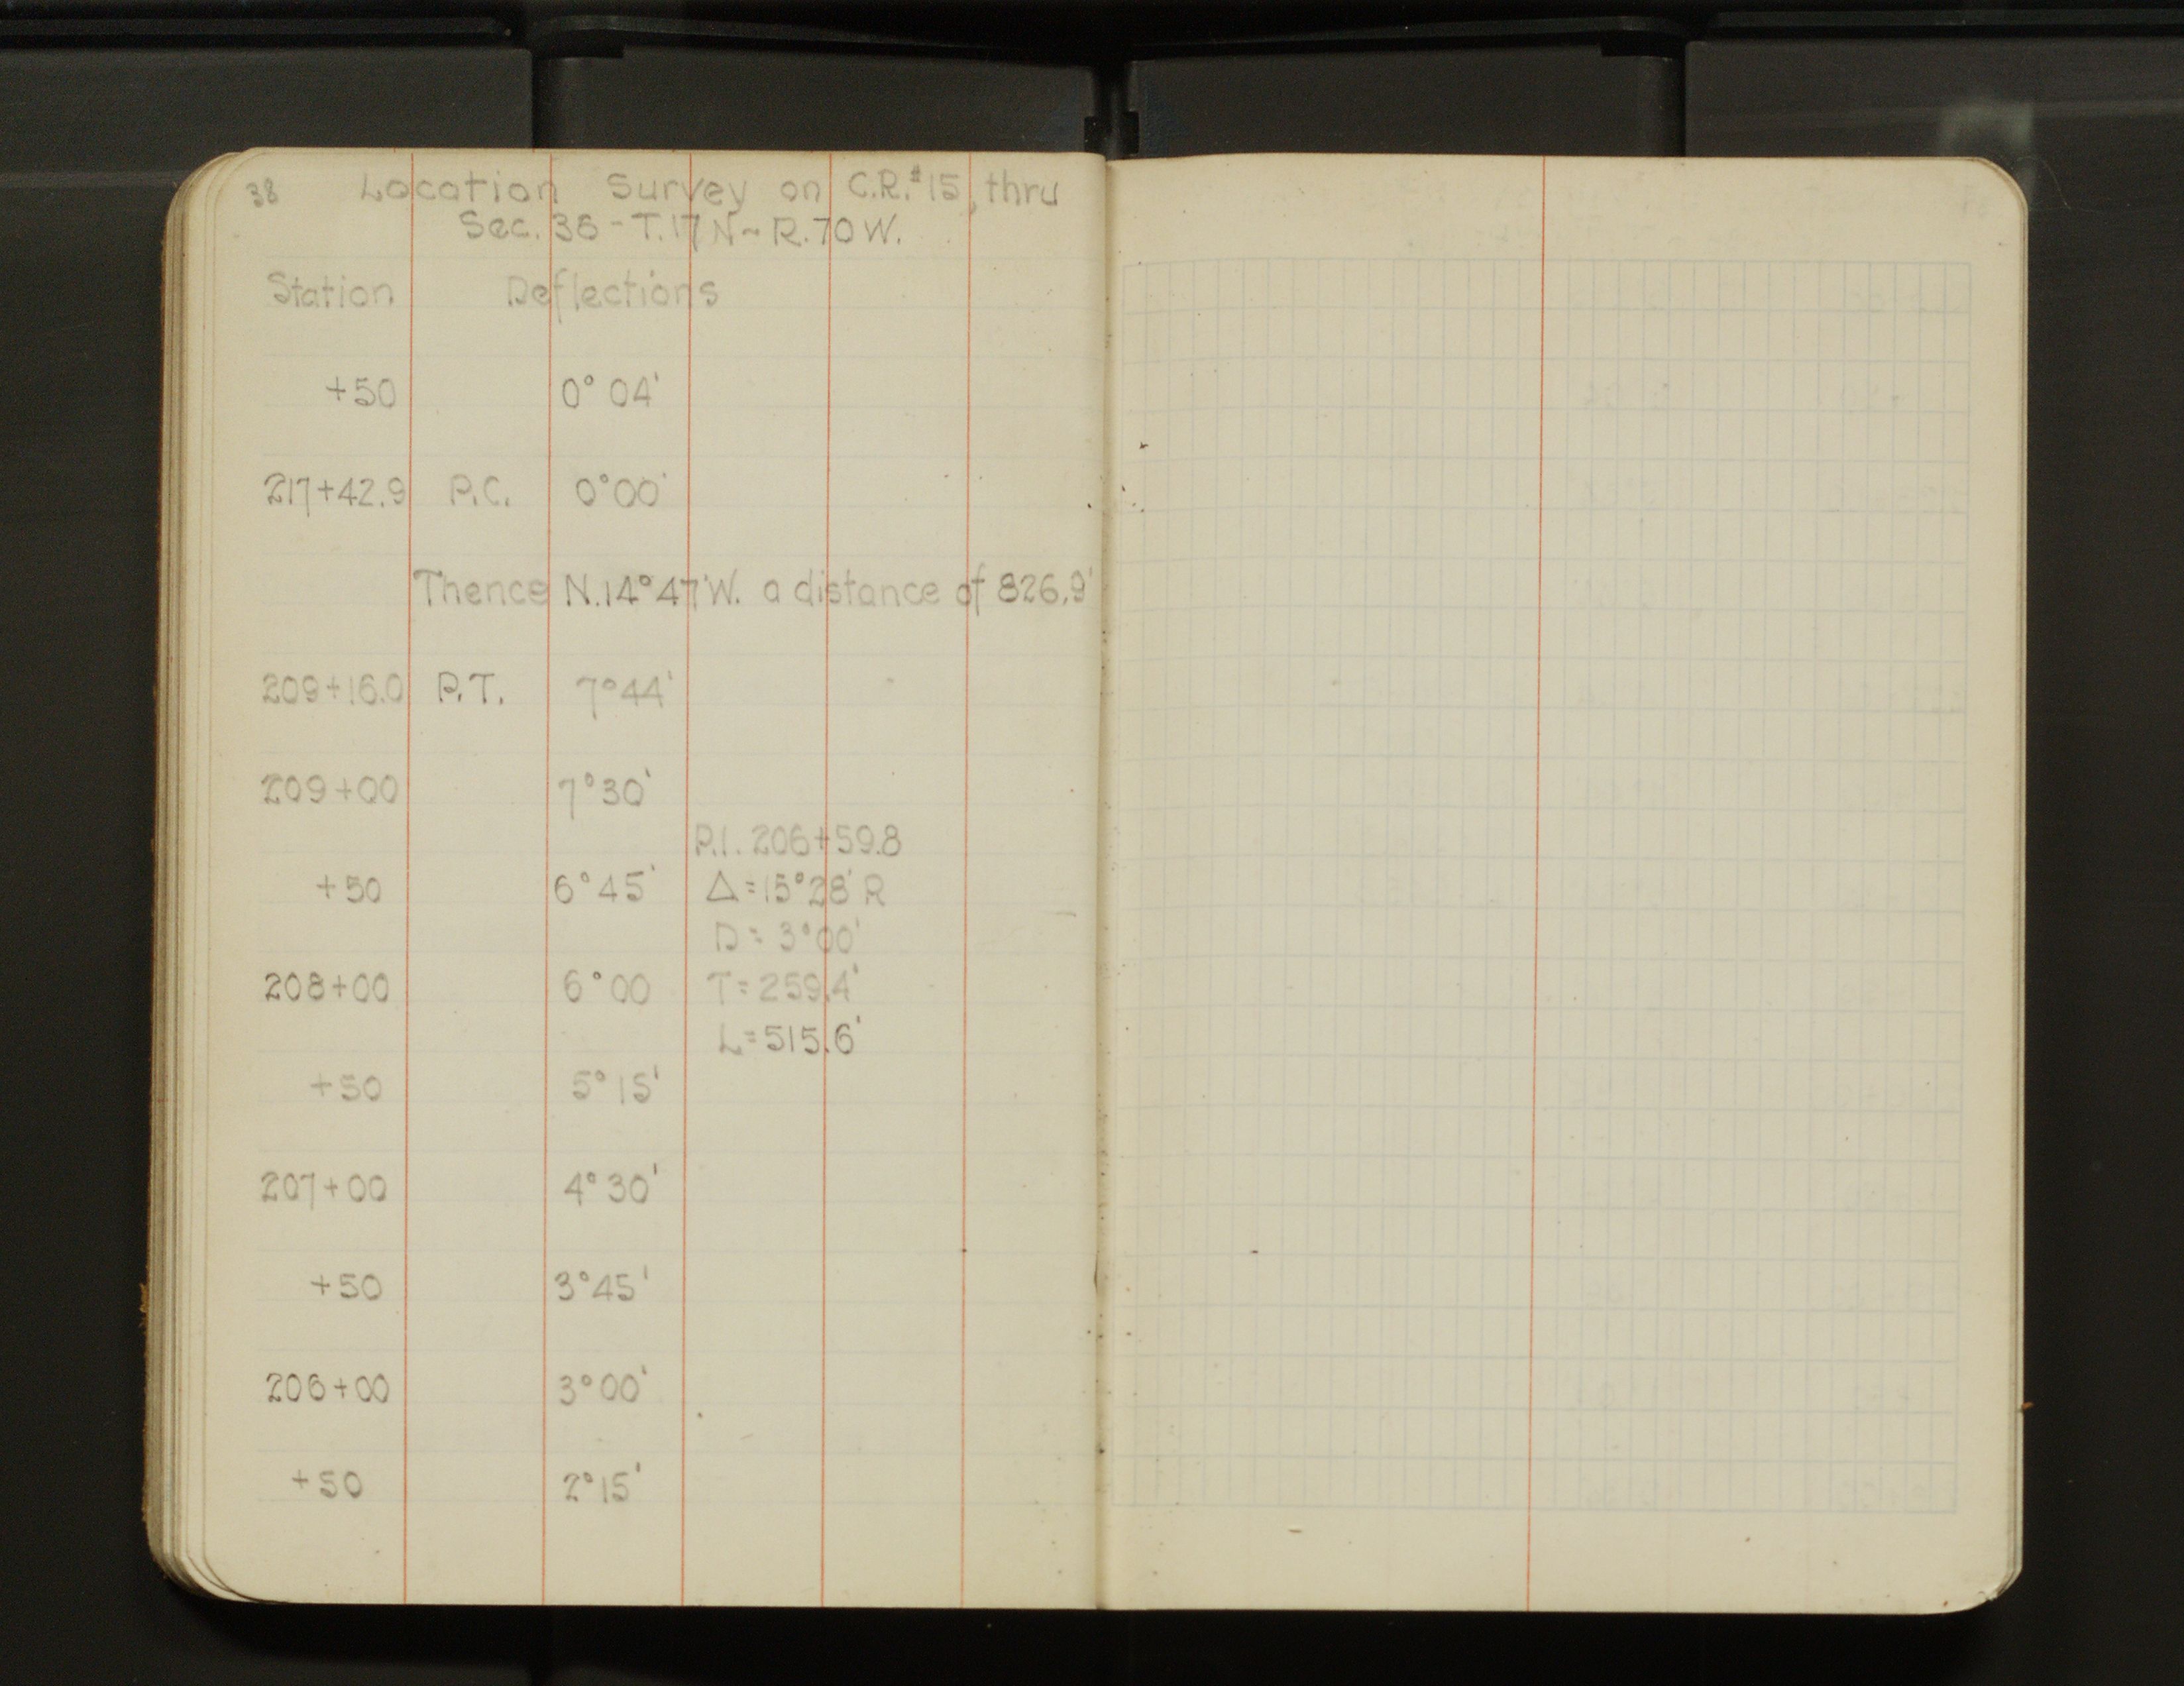 38 Location Survey on C.R.#15, thru
Sec. 36 - T.17N ~ R.70W.
Station Deflections
+50 0° 04'
217+42.9 P.C. 0°00'
Thence N.14°47'W. a distance of 826.9'
209+16.0 P.T. 7°44'
209+00 7°30'
P.I. 206+59.8
+50 6°45' Δ=15°28' R
D= 3°00'
208+00 6°00 T=259.4'
L=515.6'
+50 5°15'
207+00 4°30'
+50 3°45'
206+00 3°00'
+50 2°15'